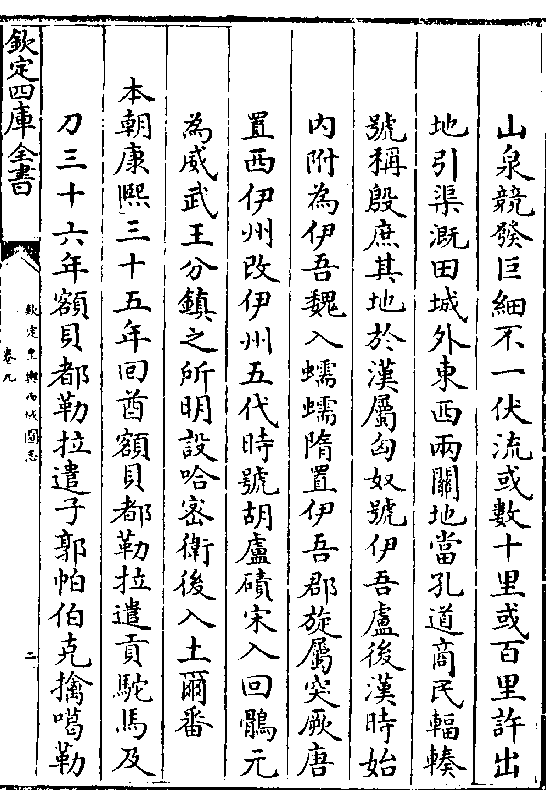 山泉競發巨細不一伏流或數十里或百里許出
地引渠溉田城外東西兩關地當孔道商民輻輳
號稱殷庶其地於漢屬匈奴號伊吾盧後漢時始
内附為伊吾魏入蠕蠕隋置伊吾郡旋屬突厥唐
置西伊州改伊州五代時號胡盧磧宋入回鶻元
為威武王分鎮之所明設哈密衛後入土爾番
本朝康熙三十五年回酋額貝都勒拉遣貢駝馬及
刀三十六年額貝都勒拉遣子郭帕伯克擒噶勒
欽定四庫全書
欽定皇輿西域圖志
卷九
二